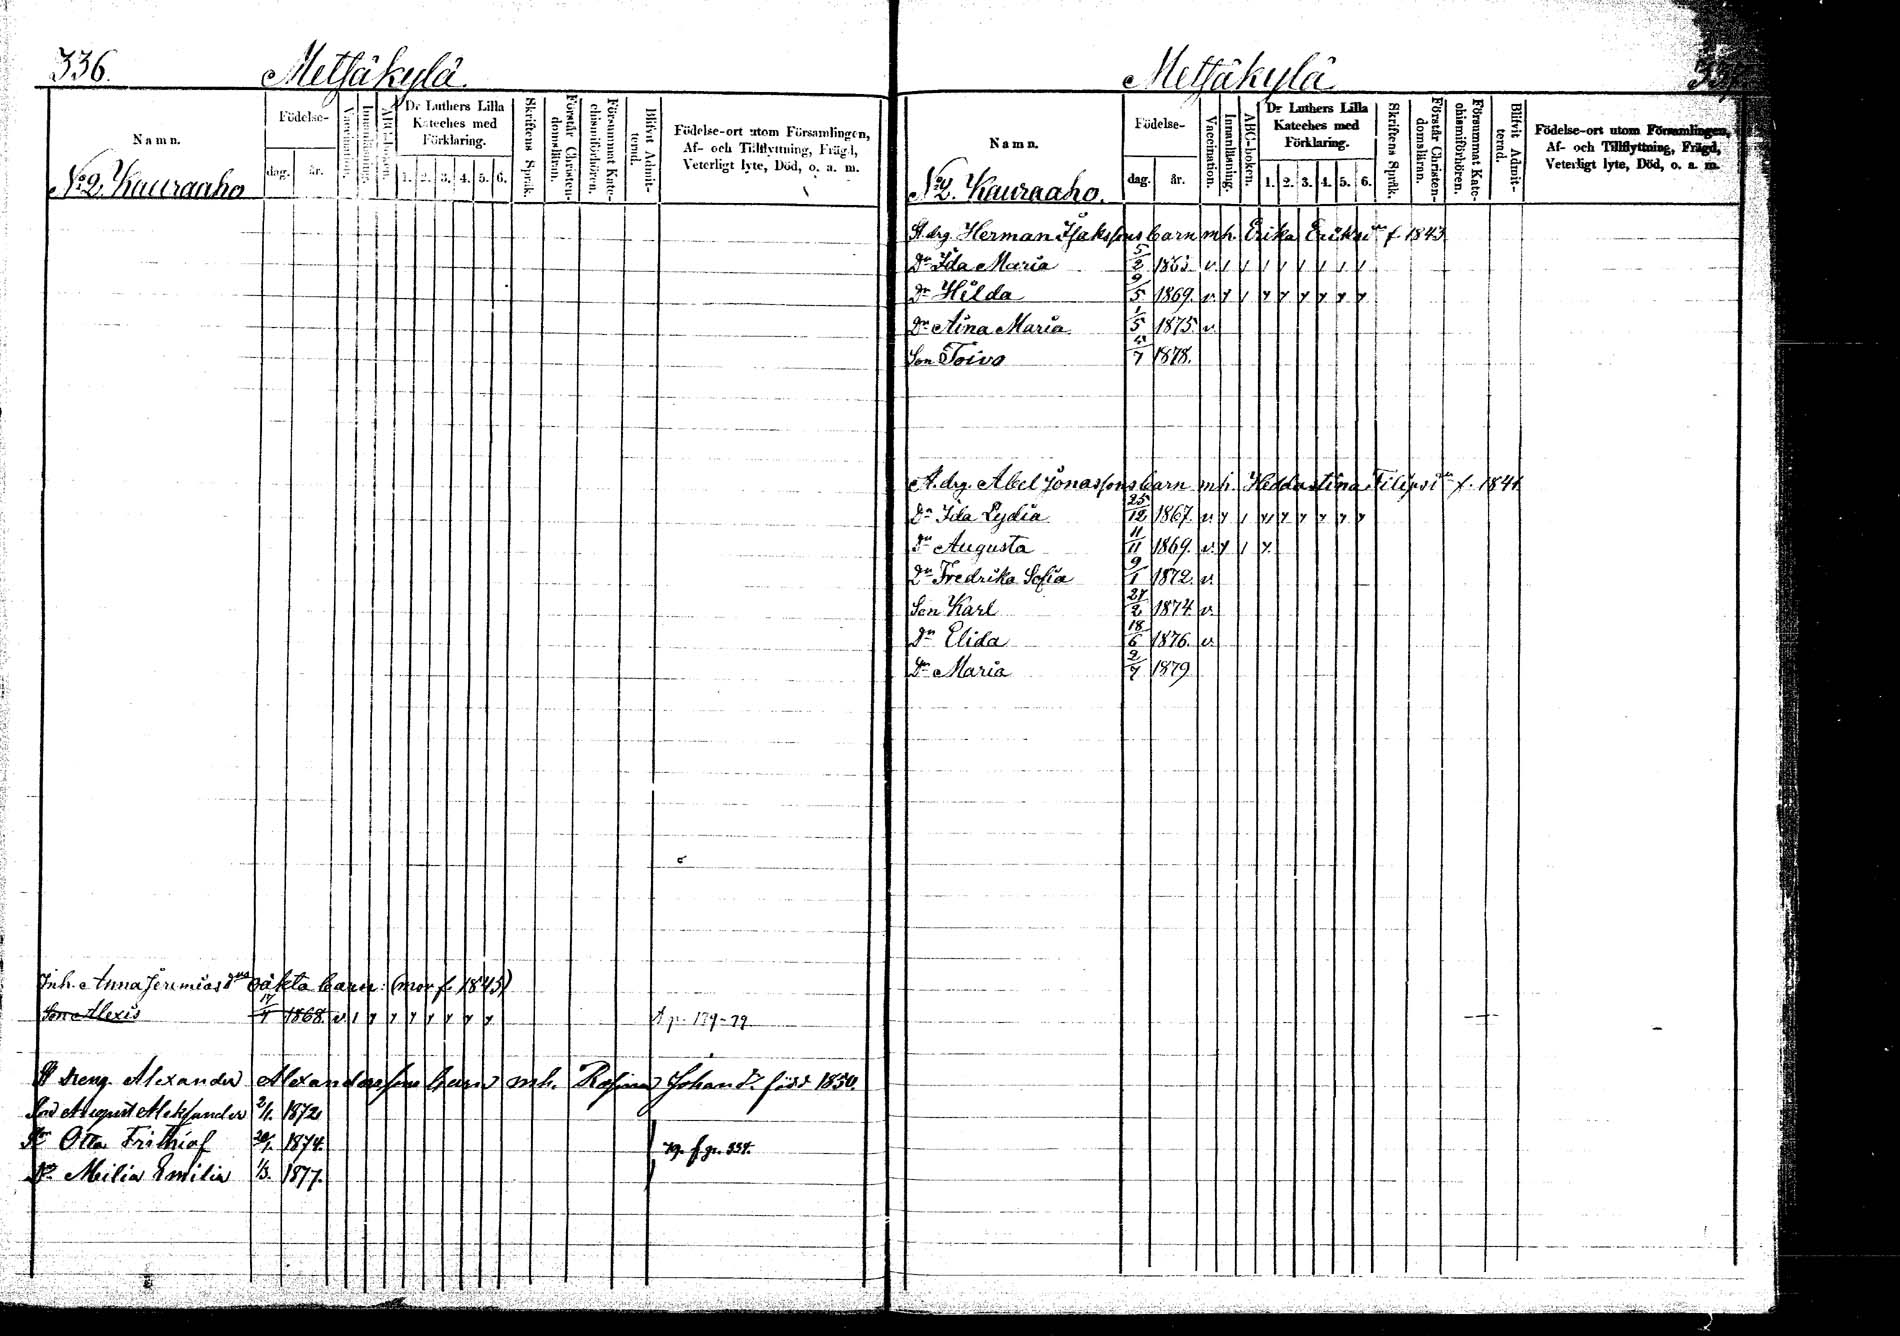 336.
Metsäkylä.
Namn.
Födelse-
dag.
år.
Vaccination.
Innanläsning.
ABC-boken.
Dr Luthers Lilla
Kateches med
Förklaring.
1. 2. 3. 4. 5. 6.
Skriftens Språk.
Förstår Christen-
domsläran.
Försummat Kate-
chismiförhören.
Blifvit Admit-
terad.
Födelse-ort utom Församlingen,
Af- och Tillflyttning, Frägd,
Veterligt lyte, Död, o. a. m.
No 2. Kauraaho
Inh. Anna Jeremiasdrs oäkta barn: (mor f. 1845)
Son Alexis 17/7 1868. v.
p. 179-79
dreng. Alexander Alexanderssons barn mh. Johansdr. född 1850.
Son August Aleksander 2/1. 1872
Otto Frithiof 20/1. 1874.
Dr Emilia 1/3. 1877.
Metsäkylä
337
Namn.
Födelse-
dag.
år.
Vaccination.
Innanläsning.
ABC-boken.
Dr Luthers Lilla
Kateches med
Förklaring.
1. 2. 3. 4. 5. 6.
Skriftens Språk.
Förstår Christen-
domsläran.
Försummat Kate-
chismiförhören.
Blifvit Admit-
terad.
Födelse-ort utom Församlingen,
Af- och Tillflyttning, Frägd,
Veterligt lyte, Död, o. a. m.
No 2. Kauraaho.
St. drg. Herman Isakssons barn mh. Erika Eriksdr f. 1843
Dr Ida Maria 5/2 1865 v.
Dr Hilda 9/5 1869. v.
Dr Aina Maria 1/5 1875 v.
Son Toivo /7 1878.
St. drg. Abel Jonassons barn mh. Heddastina Filipsdr f. 1841
Dr Ida Lydia 25/12 1867. v.
Dr Augusta 11/11 1869. v.
Dr Fredrika Sofia 9/1 1872. v.
Son Karl 27/2 1874 v.
Dr Elida 18/6 1876. v.
Dr Maria 2/7 1879